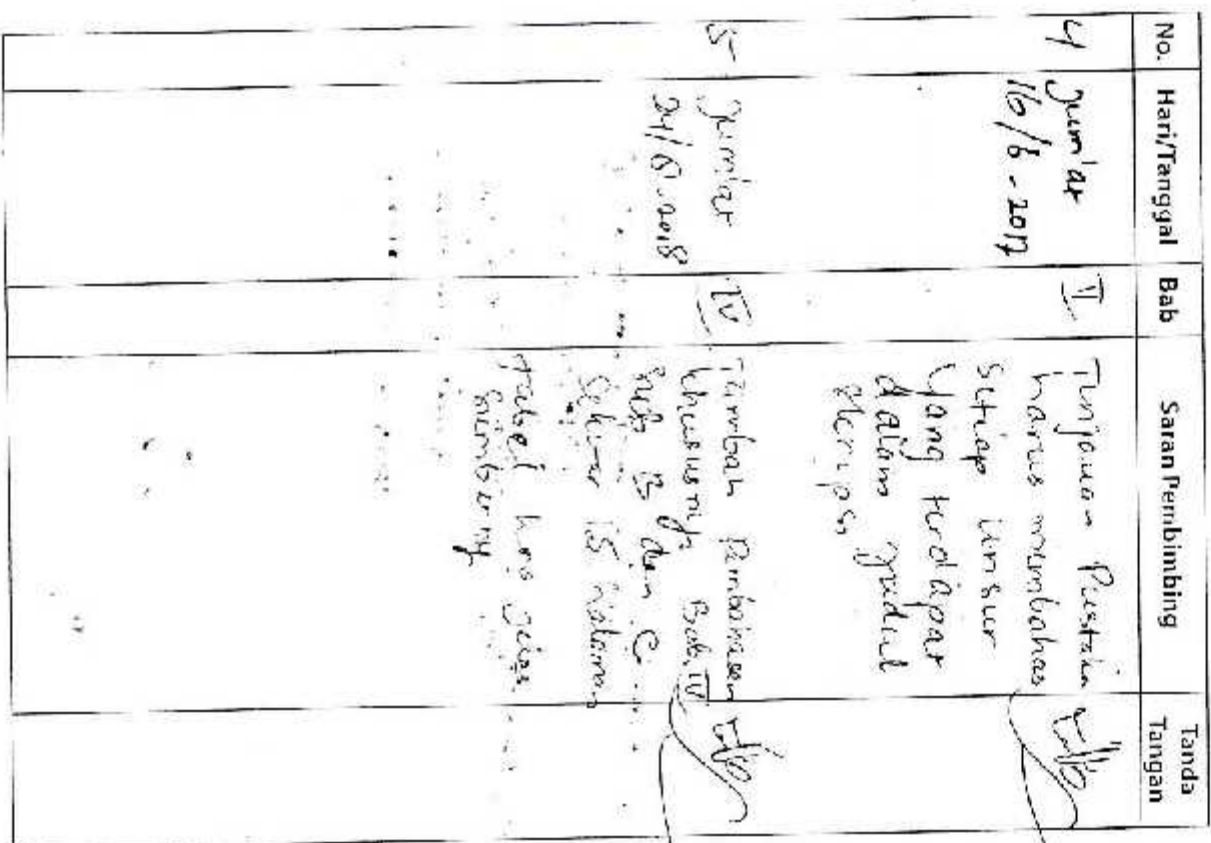 No. Hari/Tanggal Bab Saran Pembimbing Tanda Tangan
4 Jum'at II Tinjauan Pustaka
16/6-2017 harus membahas
setiap unsur
yang terdapat
dalam judul
skripsi
5 Jum'at IV Tambah Pembahasan
24/8-2018 khususnya Bab IV
sub B dan C
sekitar 15 halaman
tabel hrs jelas
sumberny